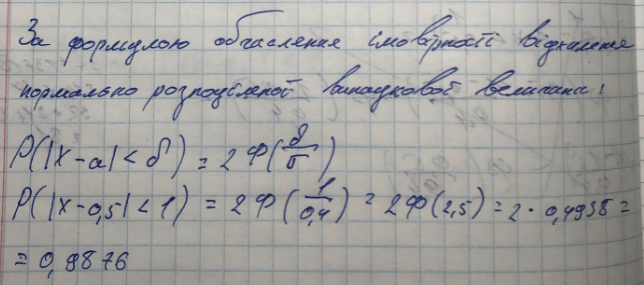 За формулою обчислення імовірності відхилення
нормально розподіленої випадкової величини:
P(|X-a|<δ) = 2Ф(δ/σ)
P(|X-0,5|<1) = 2Ф(1/0,4) = 2Ф(2,5) = 2·0,4938 =
= 0,9876